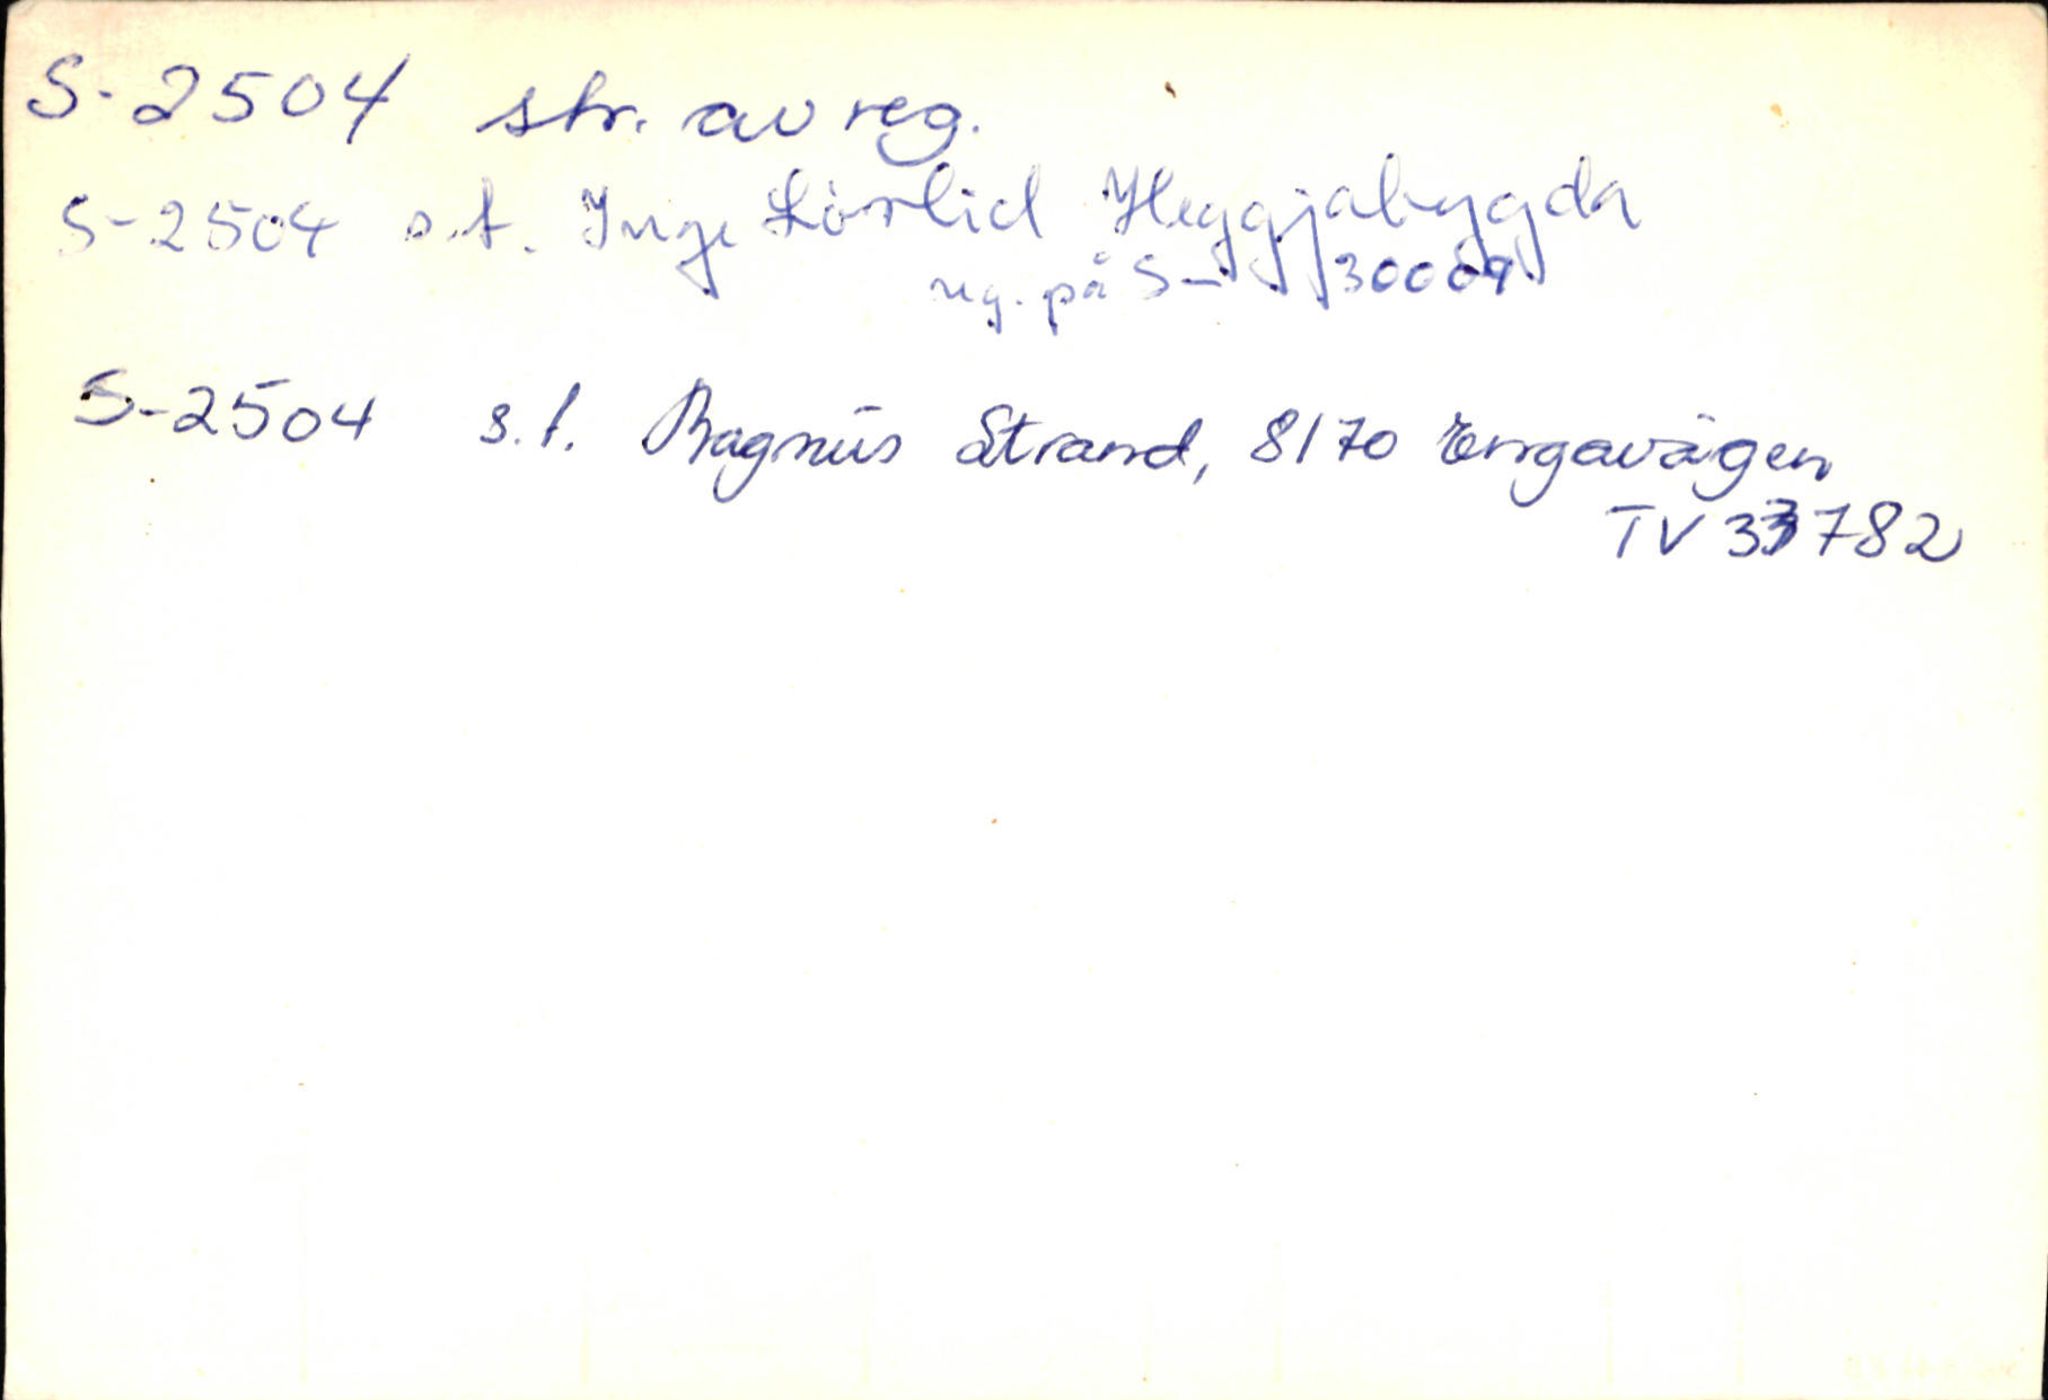 S-2504 str. av reg.
S-2504 s.t. Inge Lövlid Heggjabygda
reg. på S-30009
S-2504 s.t. Ragnus Strand, 8170 Engavågen
TV 33782